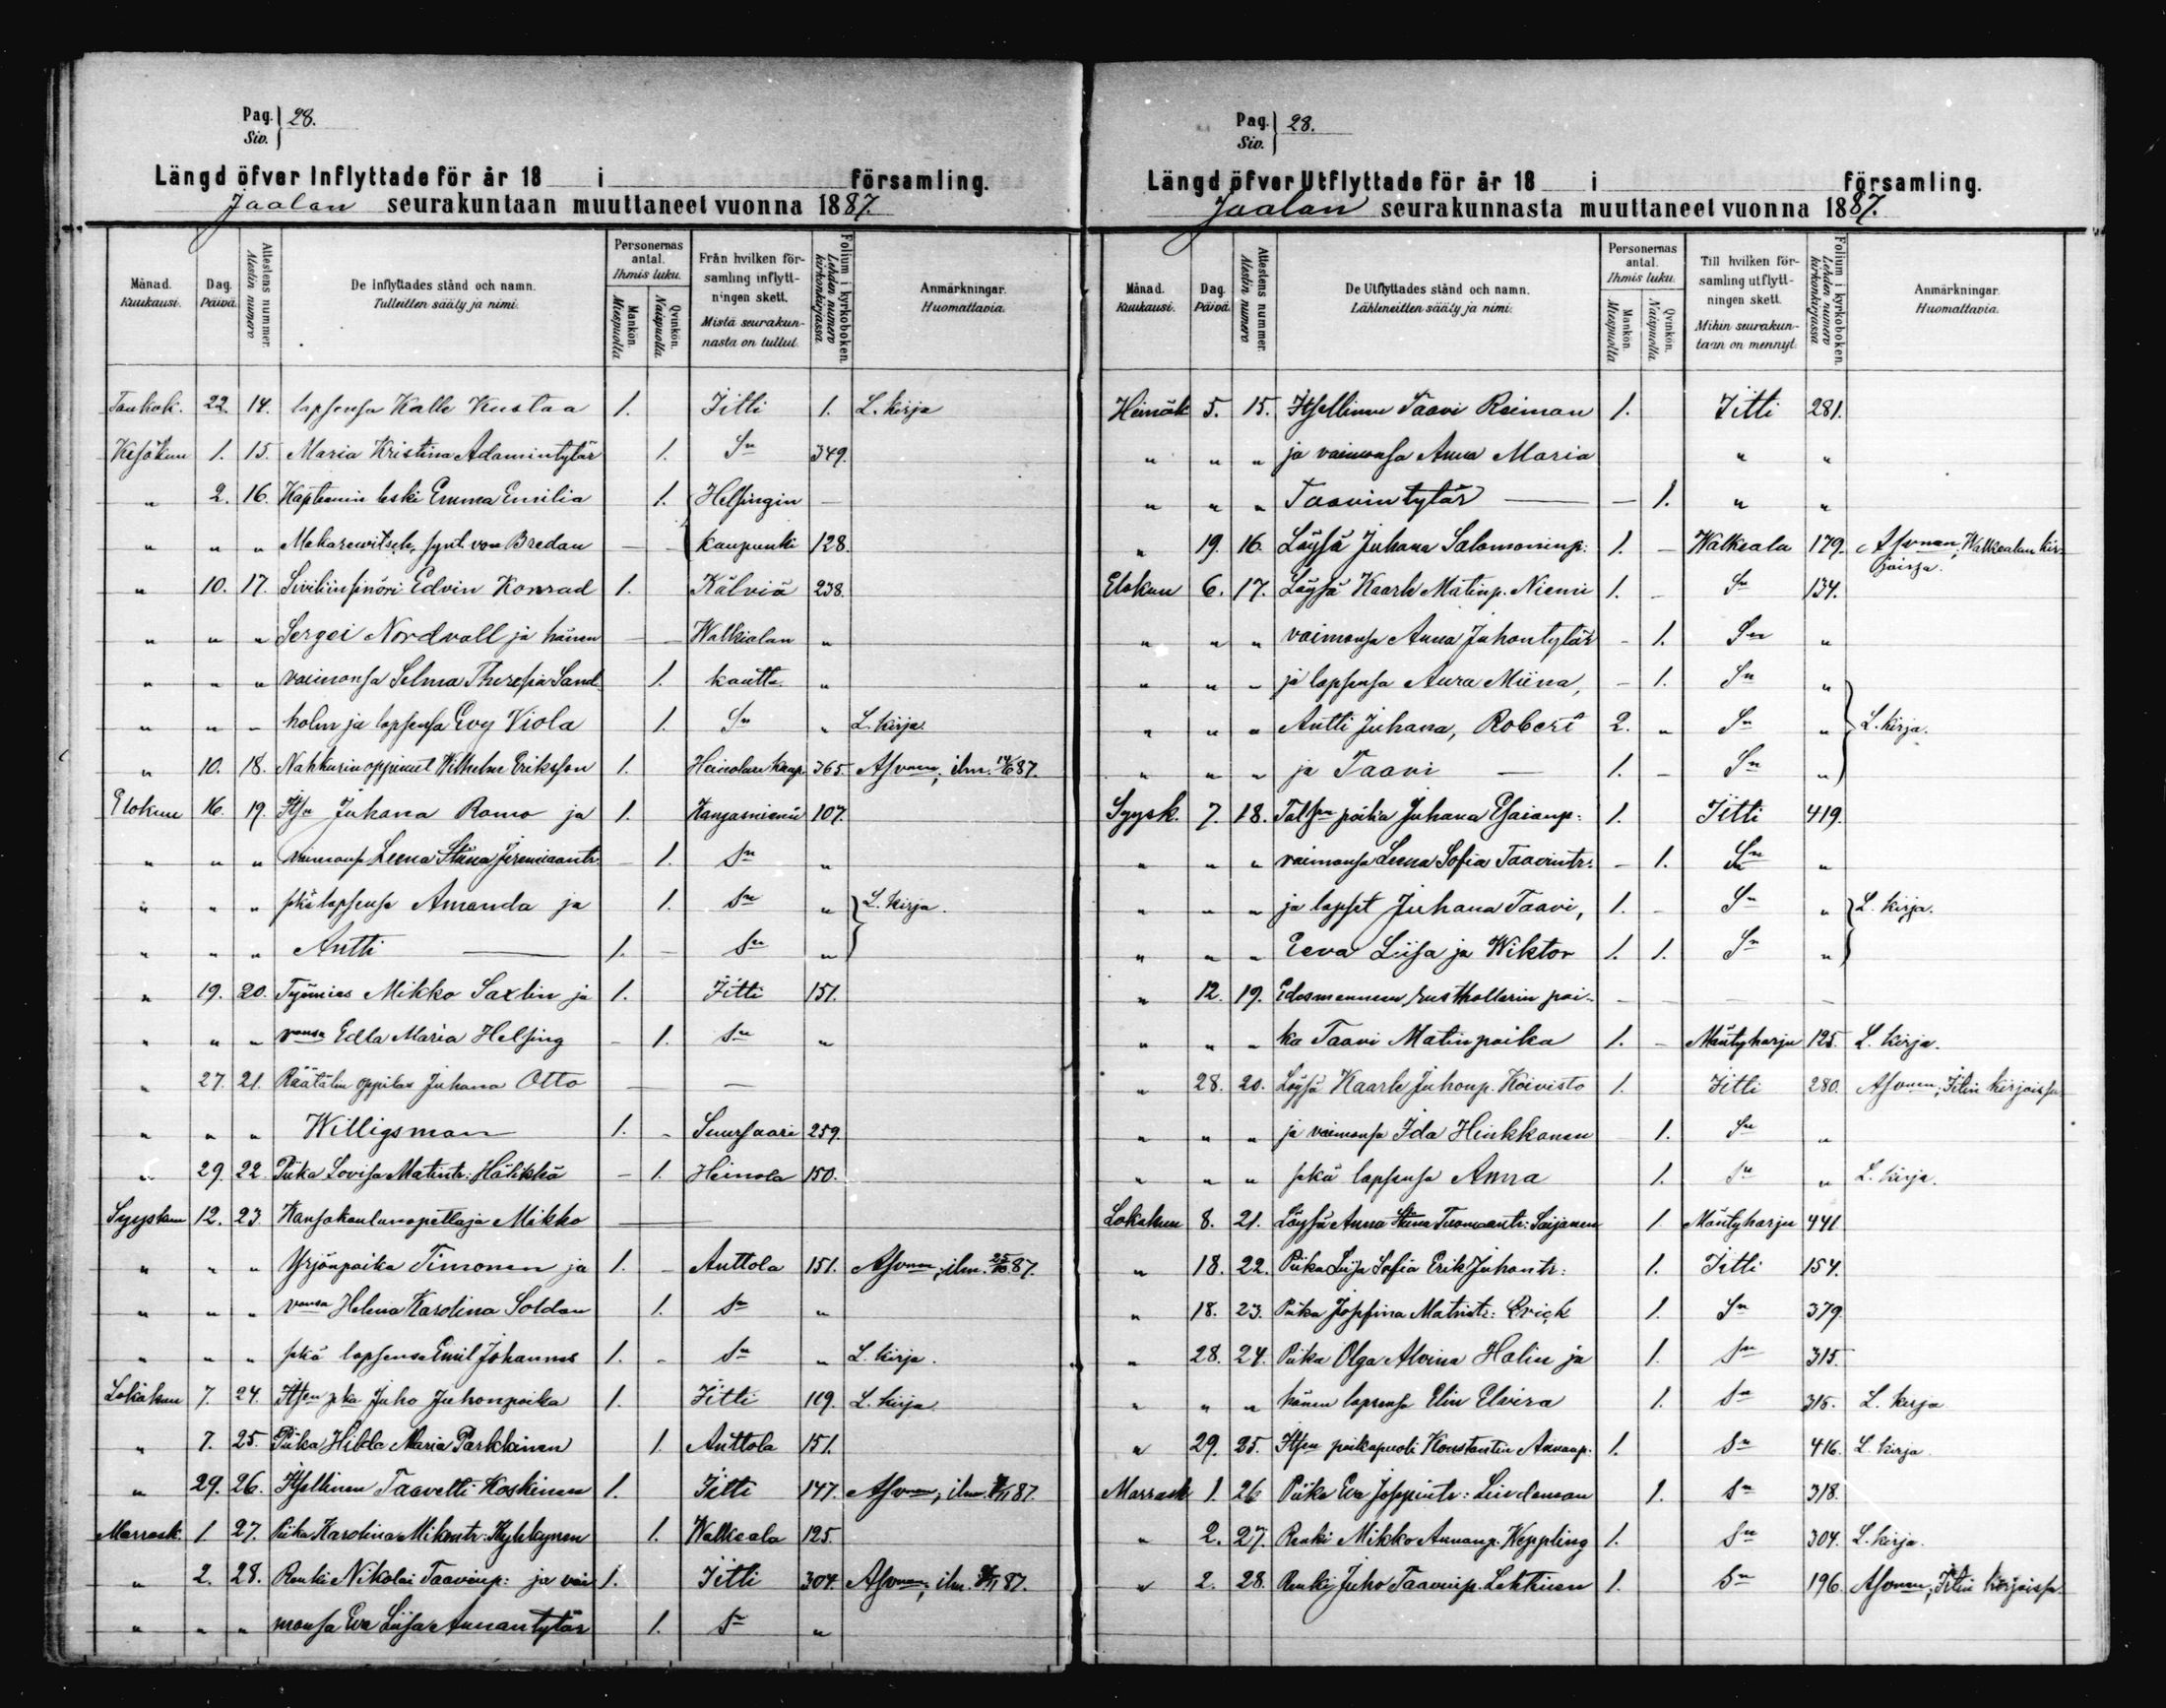 Pag. Siv. } 28.
Längd öfver Inflyttade för år 18 i församling.
Jaalan seurakuntaan muuttaneet vuonna 1887.
Månad. Kuukausi.
Dag. Päivä.
Attestens nummer. Alestin numero
De Inflyttades stånd och namn. Tulleitten sääty ja nimi.
Personernas antal. Ihmis luku.
Mankön. Miespuolta
Qvinkön. Naispuolta.
Från hvilken församling inflyttningen skett. Mistä seurakunnasta on tullut.
Folium i kyrkoboken. Lehden numero kirkonkirjassa
Anmärkningar. Huomattavia.
Toukok. 22. 14. lapsensa Kalle Kustaa 1. Iitti 1. L. kirja
Kesäkuu 1. 15. Maria Kristina Adamintytär 1. Sn 349.
" 2. 16. Kapteenin leski Emma Emilia 1. Helsingin –
" " " Makarewitsch, synt. von Bredau — – kaupunki 128.
" 10. 17. Siviliinsinöri Edvin Konrad 1. Kälviä 238.
" " " Sergei Nordvall ja hänen — – Walkialan "
" " " vaimonsa Selma Theresia Sand- 1. kautta. "
" " – holm ja lapsensa Evy Viola 1. Sn " L. kirja.
" 10. 18. Nahkurinoppinut Wilhelm Eriksson 1. Heinolan kaup. 365. Asvnen; ilm. 14/6 87.
Elokuu 16. 19. Itsn Juhana Romo ja 1. Kangasniemi 107.
" " " vaimonsa Leena Stiina Jeremiaantr. – 1. Sn "
" " " sekä lapsensa Amanda ja 1. Sn " } L. kirja.
" " " Antti — 1. – Sn "
" 19. 20. Työmies Mikko Saxlin ja 1. Iitti 151.
" " " vonsa Edla Maria Helsing – 1. Sn "
" 27. 21. Räätälin oppilas Juhana Otto — — —
" " " Willigsman 1. – Suursaari 259.
" 29. 22. Piika Lovisa Matintr: Hälikkä – 1. Heinola 150.
Syyskuu 12. 23. Kansakoulunopettaja Mikko —
" " " Yrjönpoika Timonen ja 1. – Anttola 151. Asvnen; ilm. 25/10 87.
" " " vonsa Helena Karolina Soldan 1. Sn "
" " " sekä lapsensa Emil Johannes 1. – Sn " L. kirja.
Lokakuu 7. 24. Itsen pka Juho Juhonpoika 1. Iitti 119. L. kirja
" 7. 25. Piika Hilda Maria Parkkinen 1. Anttola 151.
" 29. 26. Itsellinen Taavetti Koskinen 1. Iitti 147. Asvnen; ilm. 87.
Marrask. 1. 27. Piika Karolina Mikontr: Kyhkynen 1. Walkeala 125.
" 2. 28. Renki Nikolai Taavinp: ja vai- 1. Iitti 304. Asvnen; ilm. 87.
" " " monsa Eva Liisa Annantytär 1. Sn "
Pag. Siv. } 28.
Längd öfver Utflyttade för år 18 i församling.
Jaalan seurakunnasta muuttaneet vuonna 1887.
Månad. Kuukausi.
Dag. Päivä.
Attestens nummer. Alestin numero
De Utflyttades stånd och namn. Lähteneitten sääty ja nimi.
Personernas antal. Ihmis luku.
Mankön. Miespuolta
Qvinkön. Naispuolta.
Till hvilken församling utflyttningen skett. Mihin seurakuntaan on mennyt.
Folium i kyrkoboken. Lehden numero kirkonkirjassa
Anmärkningar. Huomattavia.
Heinäk 5. 15. Itsellinen Taavi Reiman 1. Iitti 281.
" " " ja vaimonsa Anna Maria " "
" " " Taavintytär — – 1. " "
" 19. 16. Löysä Juhana Salomoninp: 1. – Walkeala 179. Asvnen, Walkealan kirjoissa.
Elokuu 6. 17. Löysä Kaarle Matinp. Niemi 1. – Sn 134.
" " " vaimonsa Anna Juhontytär – 1. Sn "
" " – ja lapsensa Aura Miina, – 1. Sn "
" " " Antti Juhana, Robert 2. " Sn " } L. kirja.
" " " ja Taavi — 1. – Sn "
Syysk. 7. 18. Tallsen poika Juhana Esaianp: 1. Iitti 419.
" " " vaimonsa Leena Sofia Taavintr. – 1. Sn "
" " " ja lapset Juhana Taavi, 1. – Sn " } L. kirja.
" " " Eeva Liisa ja Wiktor 1. 1. Sn "
" 12. 19. Edesmenneen rusthollarin poi- – – – –
" " " ka Taavi Matinpoika 1. – Mäntyharju 125. L. kirja.
" 28. 20. Löysä Kaarle Juhonp. Koivisto 1. Iitti 280. Asvnen; Iitin kirjoissa
" " " ja vaimonsa Ida Hinkkanen 1. Sn "
" " " sekä lapsensa Anna 1. Sn " L. kirja.
Lokakuu 8. 21. Löysä Anna Stiina Tuomaantr: Saijanen 1. Mäntyharju 441.
" 18. 22. Piika Liisa Sofia Erik Juhontr: 1. Iitti 154.
" 18. 23. Piika Josefina Matintr: Erick 1. Sn 379.
" 28. 24. Piika Olga Alvina Halin ja 1. Sn 315.
" " " hänen lapsensa Elin Elvira 1. Sn 315. L. kirja
" 29. 25. Itsen poikapuoli Konstantin Annanp. 1. Sn 416. L. kirja.
Marrask 1. 26. Piika Eva Josepintr: Lindeman 1. Sn 318.
" 2. 27. Renki Mikko Annanp. Keppling 1. Sn 304. L. kirja.
" 2. 28. Renki Juho Taavinp. Lehtinen 1. Sn 196. Asvnen; Iitin kirjoissa.